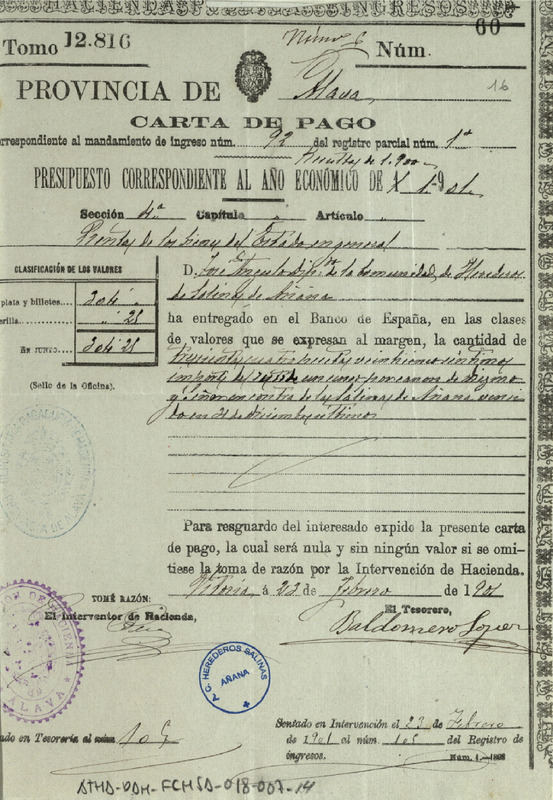 60
Tomo 12.816
Núm.
16
PROVINCIA DE Alava
CARTA DE PAGO
correspondiente al mandamiento de ingreso núm. 92 del registro parcial núm. 1º
Resultas de 1.900
PRESUPUESTO CORRESPONDIENTE AL AÑO ECONÓMICO DE 1901
Sección 4ª Capítulo " Artículo "
Rentas de los bienes del Estado en general
CLASIFICACIÓN DE LOS VALORES
D. José Angulo de la Comunidad de Herederos
de Salinas de Añana
plata y billetes 304 "
" 25
EN JUNTO 304 25
(Sello de la Oficina).
ha entregado en el Banco de España, en las clases
de valores que se expresan al margen, la cantidad de
trescientas cuatro pesetas veinticinco céntimos
importe del de un censo por canon de diezmo
y señor en contra de las Salinas de Añana venci
do en 31 de Diciembre último
Para resguardo del interesado expido la presente carta
de pago, la cual será nula y sin ningún valor si se omi-
tiese la toma de razón por la Intervención de Hacienda.
Vitoria, á 23 de Febrero de 1901
TOMÉ RAZÓN:
El Interventor de Hacienda,
El Tesorero,
Baldomero Lopez
A.C. HEREDEROS SALINAS
AÑANA
ALAVA
Sentado en Intervención el 23 de Febrero
de 1901 al núm. 105 del Registro de
ingresos.
Núm. 1.—1898
ado en Tesorería al núm. 105
ATHA-DAH-FCHSA-018-007-14